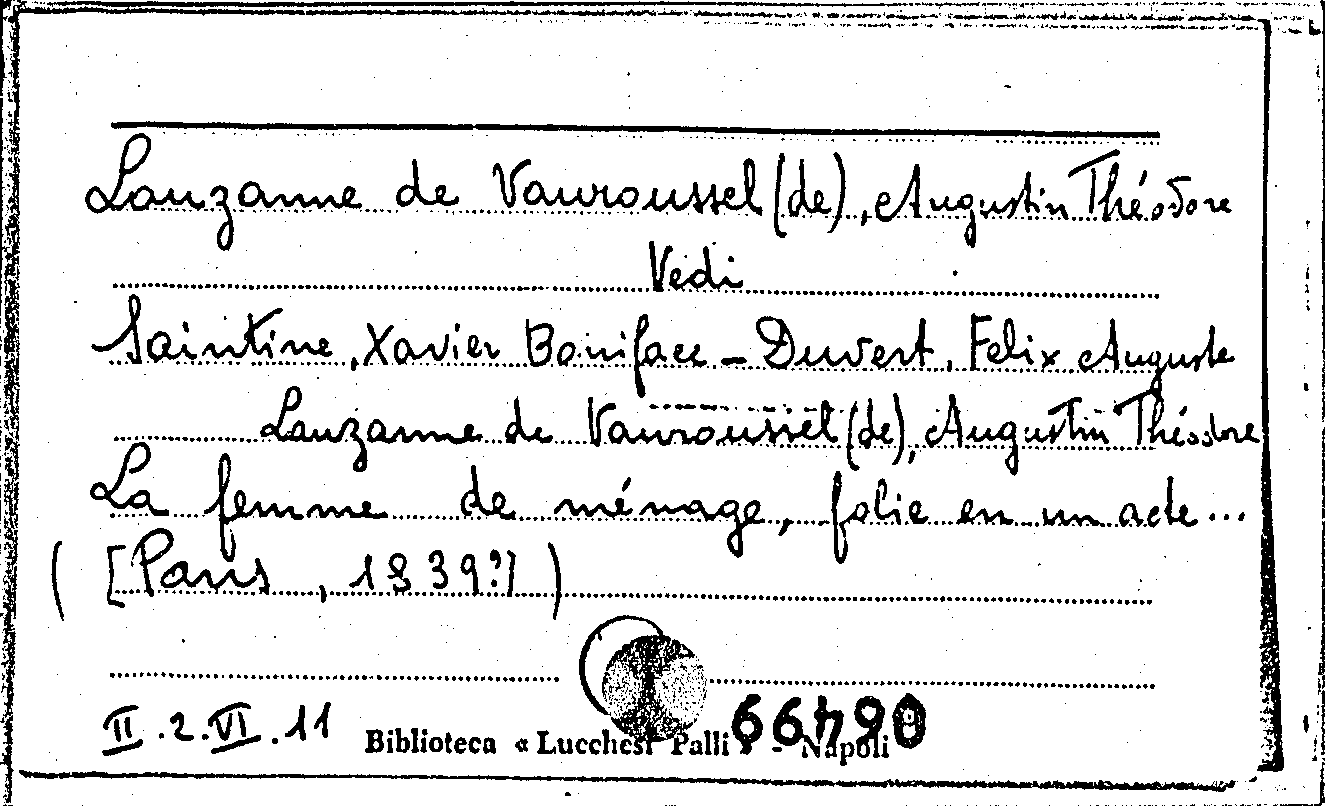 Lauzanne de Vauroussel (de), Augustin Théodore
Vedi
Saintine, Xavier Boniface - Duvert, Felix Auguste
Lauzanne de Vauroussel (de), Augustin Théodore
La femme de ménage, folie en un acte...
([Paris, 1839?])
II.2.VI.11
Biblioteca « Lucchesi Palli » - Napoli